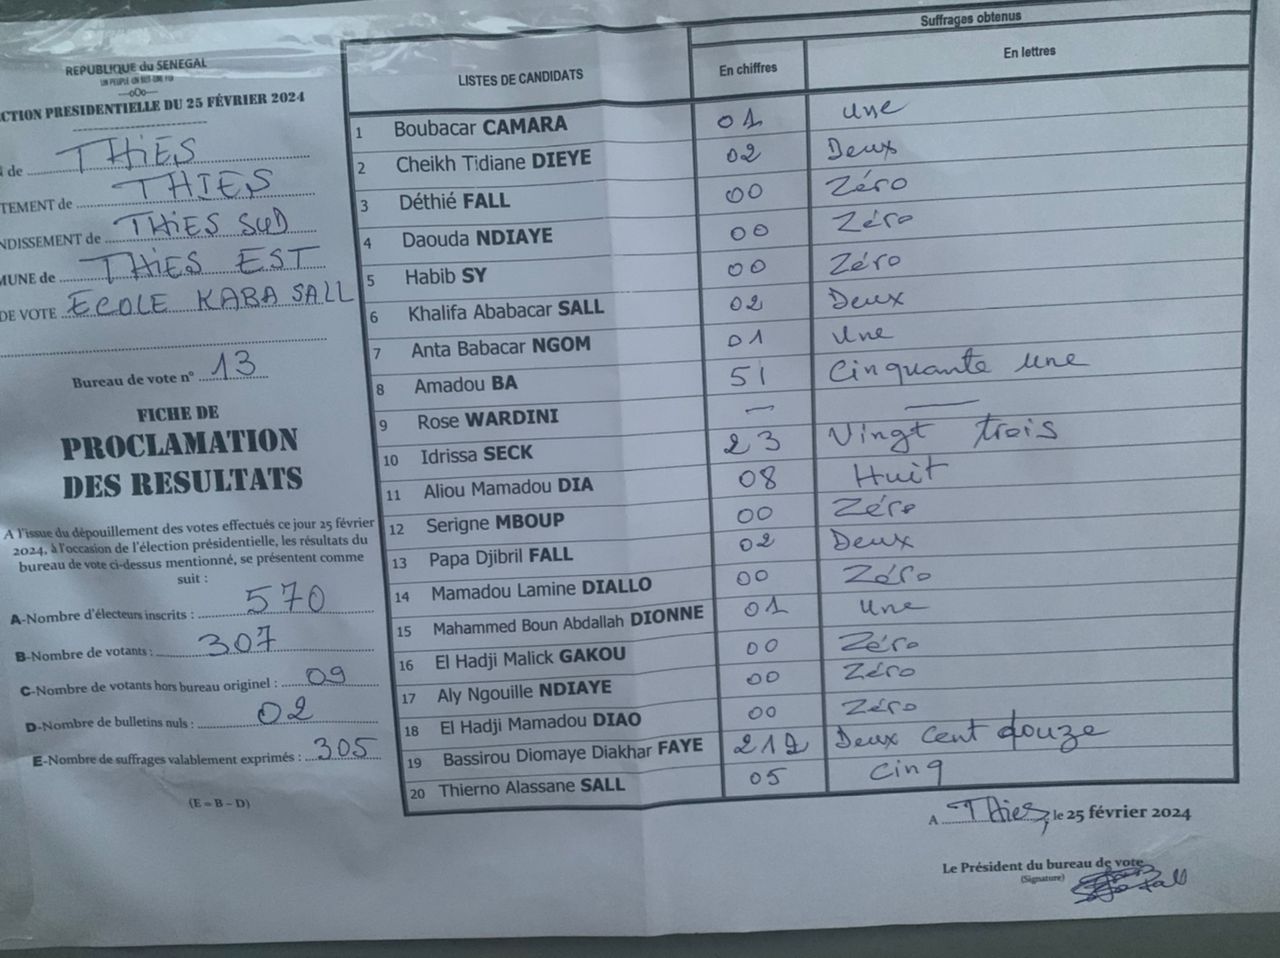 REPUBLIQUE du SENEGAL
UN PEUPLE-UN BUT-UNE FOI
—oOo—
CTION PRESIDENTIELLE DU 25 FÉVRIER 2024
de THiES
TEMENT de THIES
NDISSEMENT de THiES SUD
MUNE de THIES EST
DE VOTE ECOLE KABA SALL
Bureau de vote n° 13
FICHE DE
PROCLAMATION
DES RESULTATS
A l'issue du dépouillement des votes effectués ce jour 25 février
2024, à l'occasion de l'élection présidentielle, les résultats du
bureau de vote ci-dessus mentionné, se présentent comme
suit :
A-Nombre d'électeurs inscrits : 570
B-Nombre de votants : 307
C-Nombre de votants hors bureau originel : 09
D-Nombre de bulletins nuls : 02
E-Nombre de suffrages valablement exprimés : 305
(E = B – D)
LISTES DE CANDIDATS Suffrages obtenus
En chiffres En lettres
1 Boubacar CAMARA 01 Une
2 Cheikh Tidiane DIEYE 02 Deux
3 Déthié FALL 00 Zéro
4 Daouda NDIAYE 00 Zéro
5 Habib SY 00 Zéro
6 Khalifa Ababacar SALL 02 Deux
7 Anta Babacar NGOM 01 Une
8 Amadou BA 51 Cinquante une
9 Rose WARDINI — —
10 Idrissa SECK 23 Vingt trois
11 Aliou Mamadou DIA 08 Huit
12 Serigne MBOUP 00 Zéro
13 Papa Djibril FALL 02 Deux
14 Mamadou Lamine DIALLO 00 Zéro
15 Mahammed Boun Abdallah DIONNE 01 Une
16 El Hadji Malick GAKOU 00 Zéro
17 Aly Ngouille NDIAYE 00 Zéro
18 El Hadji Mamadou DIAO 00 Zéro
19 Bassirou Diomaye Diakhar FAYE 212 Deux cent douze
20 Thierno Alassane SALL 05 Cinq
A Thies, le 25 février 2024
Le Président du bureau de vote
(Signature)